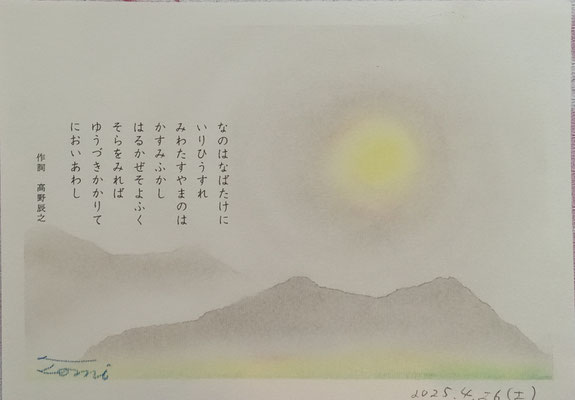 なのはなばたけに
いりひうすれ
みわたすやまのは
かすみふかし
はるかぜそよふく
そらをみれば
ゆうづきかかりて
においあわし
作詞 高野辰之
Tomi
2025.4.26(土)